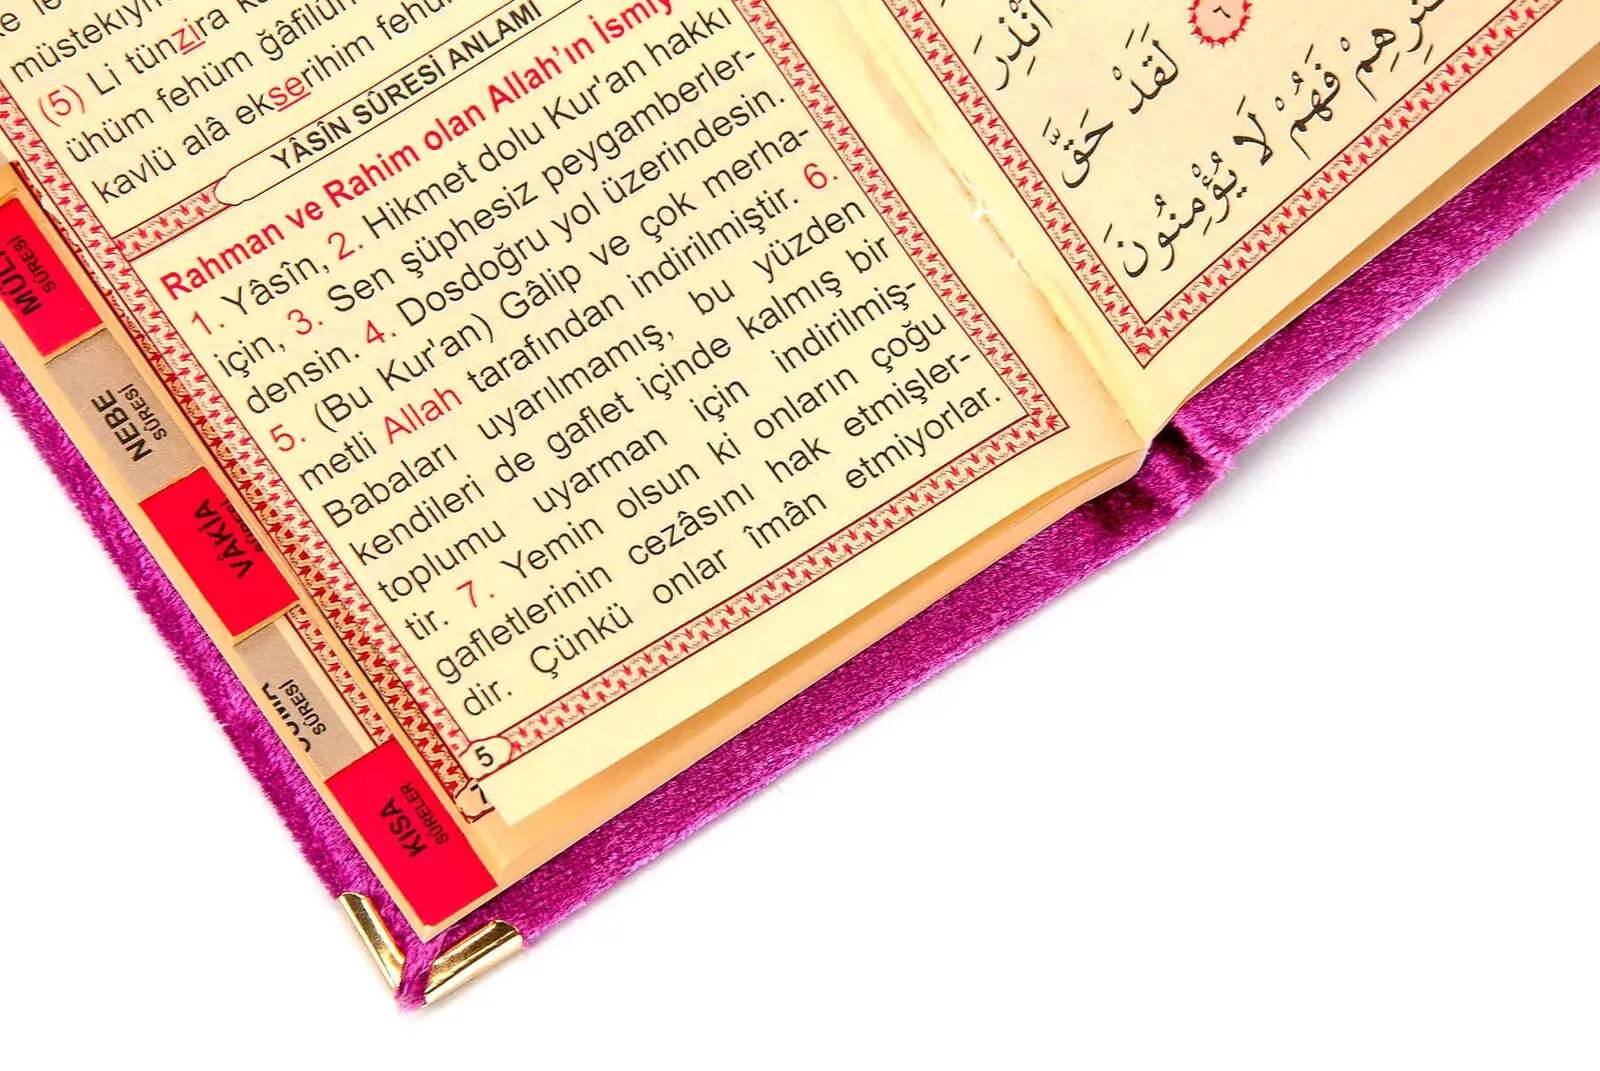 müstekıym
(5) Li tünzira
ühüm fehüm ğâfilûn
kavlü alâ ekserihim fehüm
YÂSÎN SÛRESİ ANLAMI
Rahman ve Rahim olan Allah'ın İsmiy
1. Yâsîn, 2. Hikmet dolu Kur'an hakkı
için, 3. Sen şüphesiz peygamberler-
densin. 4. Dosdoğru yol üzerindesin.
5. (Bu Kur'an) Gâlip ve çok merha-
metli Allah tarafından indirilmiştir. 6.
Babaları uyarılmamış, bu yüzden
kendileri de gaflet içinde kalmış bir
toplumu uyarman için indirilmiş-
tir. 7. Yemin olsun ki onların çoğu
gafletlerinin cezâsını hak etmişler-
dir. Çünkü onlar îmân etmiyorlar.
5
أُنْذِرَ
٦
لَقَدْ حَقَّ
فَهُمْ لَا يُؤْمِنُونَ
SÛRESİ
NEBE
SÛRESİ
VÂKIA
SÛRESİ
KISA
SÛRELER